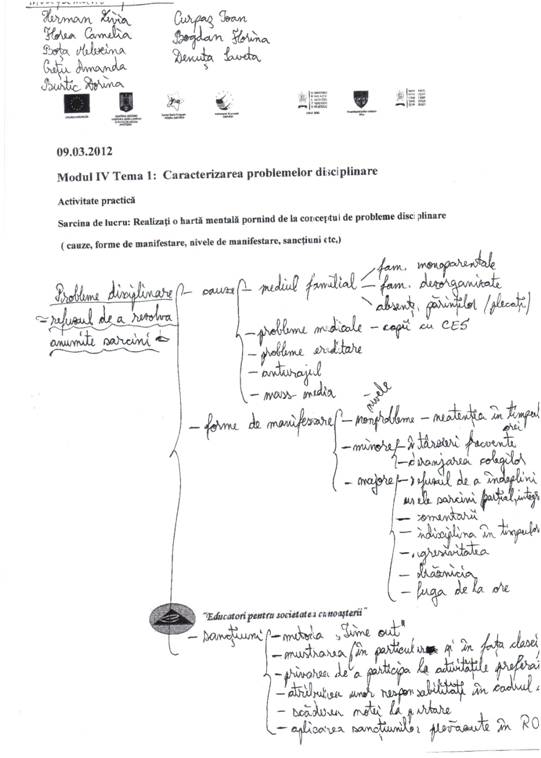 Herman Livia
Curpaș Ioan
Florea Camelia
Bogdan Florina
Boța Melexina
Denuța Saveta
Crețu Amanda
Burtic Dorina
09.03.2012
Modul IV Tema 1: Caracterizarea problemelor disciplinare
Activitate practică
Sarcina de lucru: Realizați o hartă mentală pornind de la conceptul de probleme disciplinare
( cauze, forme de manifestare, nivele de manifestare, sancțiuni etc,)
Probleme disciplinare
= refuzul de a rezolva
anumite sarcini
- cauze
- mediul familial
fam. monoparentale
fam. dezorganizate
absența părinților (plecați)
- probleme medicale - copii cu CES
- probleme ereditare
- anturajul
- mass-media
- forme de manifestare
nivele
- nonprobleme - neatenția în timpul
orei
- minore
- întârzieri frecvente
- deranjarea colegilor
- majore
- refuzul de a îndeplini
unele sarcini parțial, integr
- comentarii
- indisciplina în timpul or
- agresivitatea
- obrăznicia
- fuga de la ore
"Educatori pentru societatea cunoașterii"
- sancțiuni
- metoda „Time out"
- mustrarea în particular și în fața clasei
- privarea de a participa la activitățile prefera
- atribuirea unor responsabilități în cadrul
- scăderea notei la purtare
- aplicarea sancțiunilor prevăzute în RO